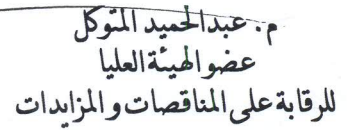 م. عبدالحميد المتوكل
عضو الهيئة العليا
للرقابة على المناقصات و المزايدات